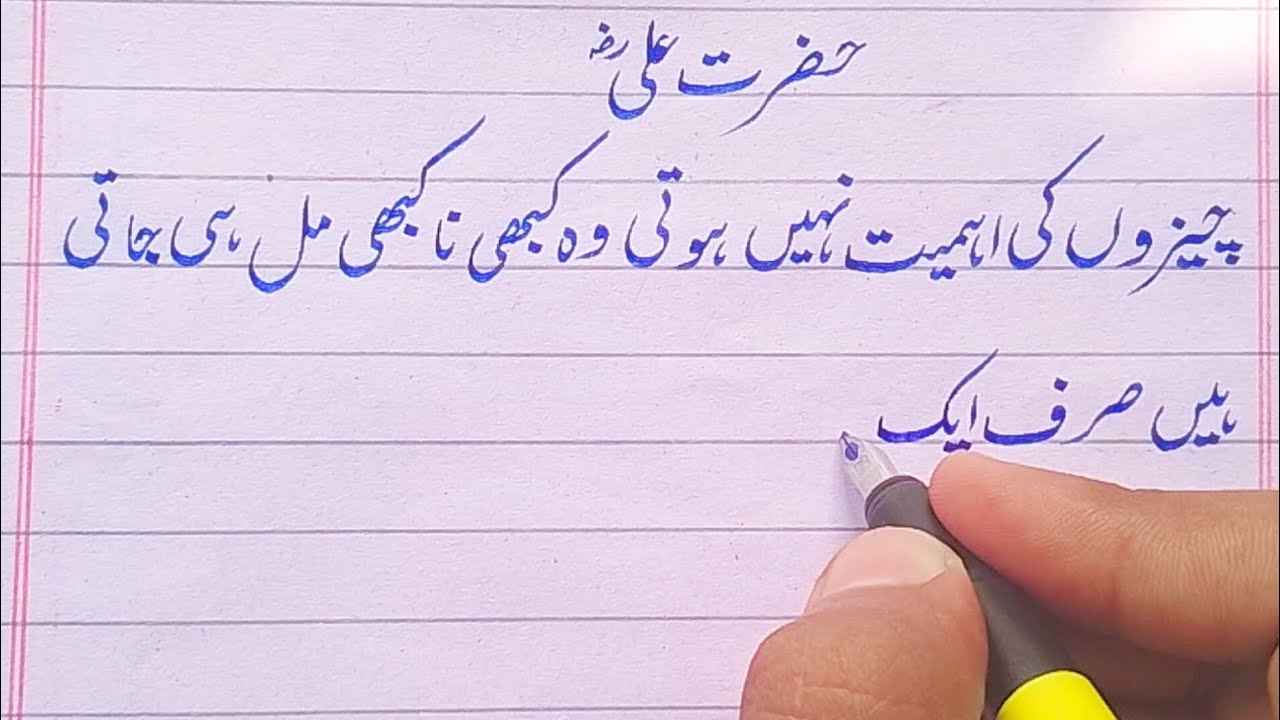 حضرت علی رضہ
چیزوں کی اہمیت نہیں ہوتی وہ کبھی نا کبھی مل ہی جاتی
ہیں صرف ایک